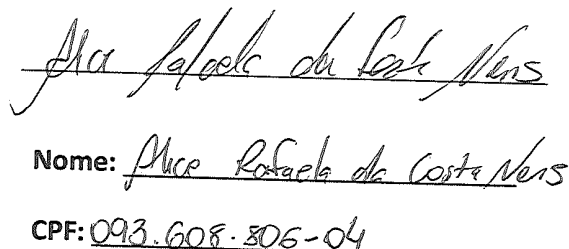 Alice Rafaela da Costa Neris
Nome: Alice Rafaela da Costa Neris
CPF: 093.608.806-04